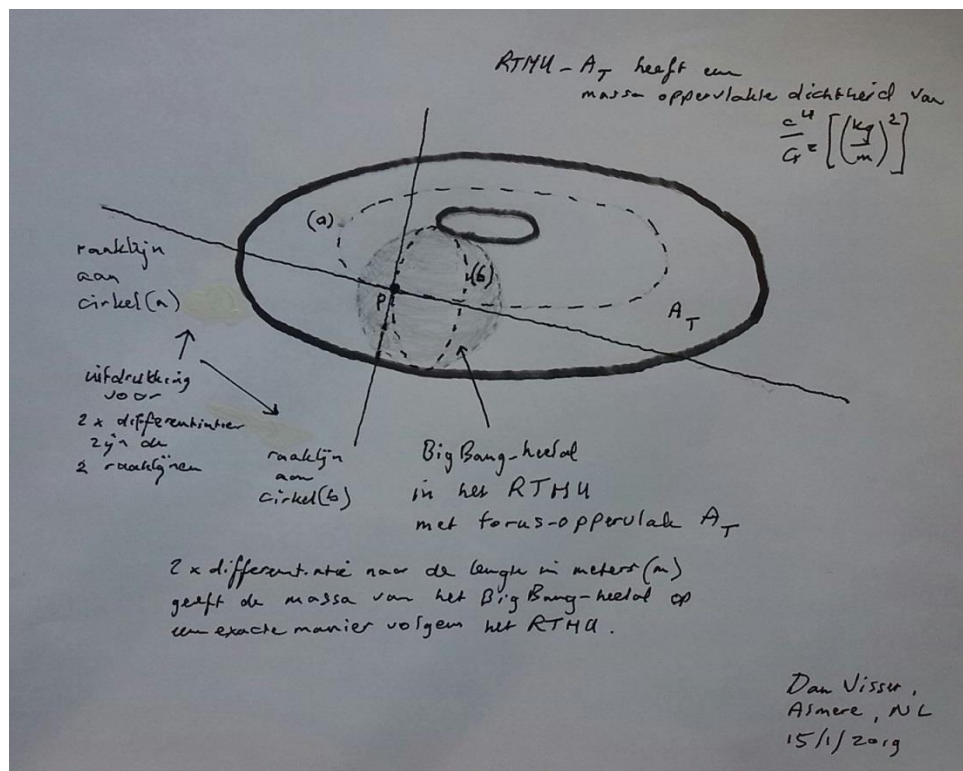 RTHU - A_T heeft een
massa oppervlakte dichtheid van
c^4/G = [(kg/m)^2]
(a)
raaklijn
aan
cirkel(a)
(b)
P
A_T
uitdrukking
voor
2 x differentiatie
zijn de
2 raaklijnen
raaklijn
aan
cirkel(b)
BigBang-heelal
in het RTHU
met torus-oppervlak A_T
2 x differentiatie naar de lengte in meters (m)
geeft de massa van het BigBang-heelal op
een exacte manier volgens het RTHU.
Dan Visser,
Almere, NL
15/1/2019